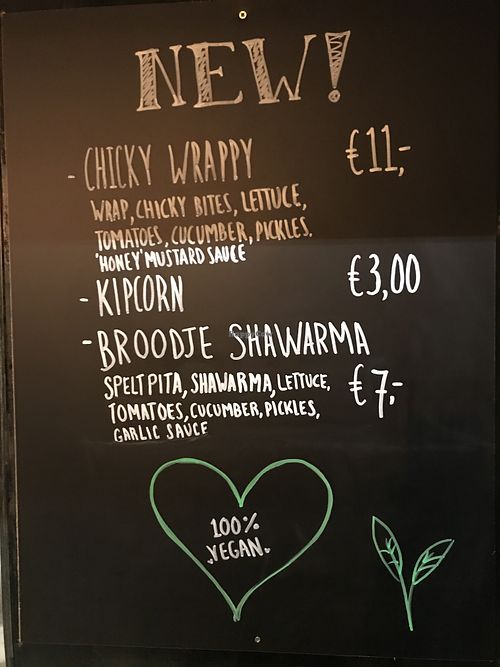 NEW!
- CHICKY WRAPPY €11,-
WRAP, CHICKY BITES, LETTUCE,
TOMATOES, CUCUMBER, PICKLES.
'HONEY' MUSTARD SAUCE
- KIPCORN €3,00
- BROODJE SHAWARMA
SPELT PITA, SHAWARMA, LETTUCE, €7,-
TOMATOES, CUCUMBER, PICKLES,
GARLIC SAUCE
100%
VEGAN.